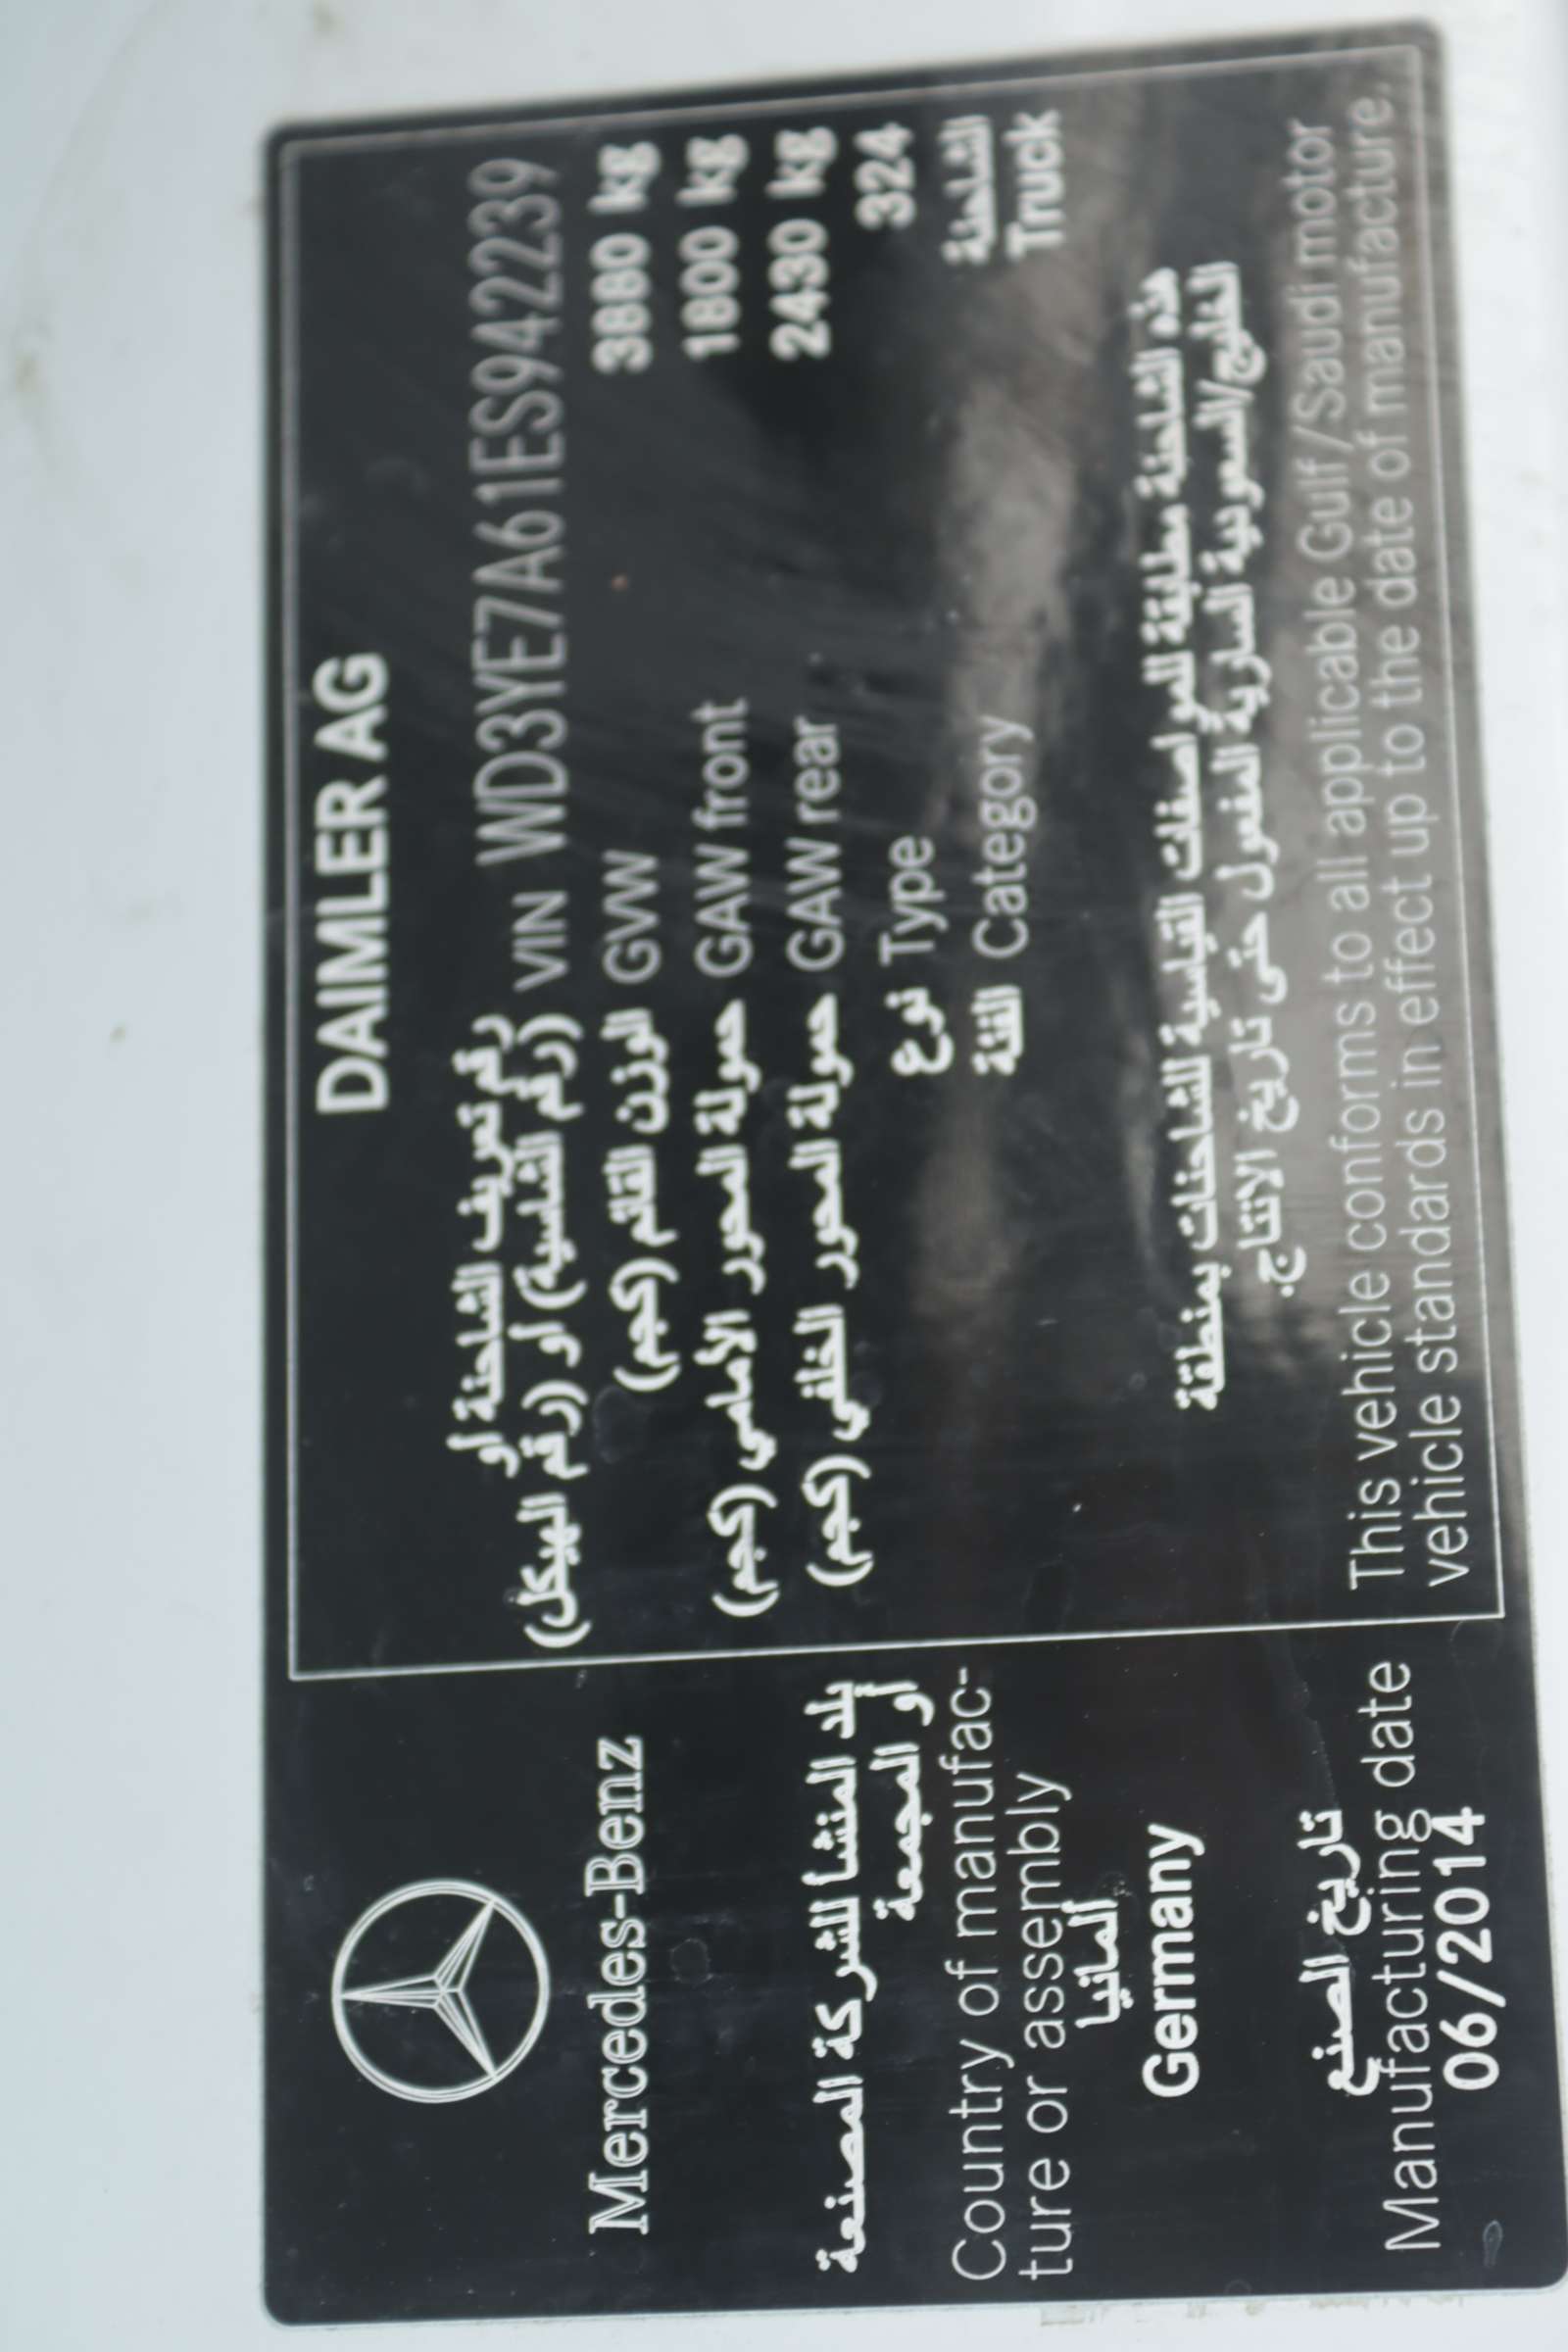 Mercedes-Benz
بلد المنشأ للشركة المصنعة
أو المجمعة
Country of manufac-
ture or assembly
ألمانيا
Germany
تاريخ الصنع
Manufacturing date
06/2014
DAIMLER AG
رقم تعريف الشاحنة أو
(رقم الشاسية) أو (رقم الهيكل) VIN WD3YE7A61ES942239
الوزن القائم (كجم) GVW 3880 kg
حمولة المحور الأمامى (كجم) GAW front 1800 kg
حمولة المحور الخلفى (كجم) GAW rear 2430 kg
نوع Type 324
الفئة Category الشاحنة
Truck
هذه الشاحنة مطابقة للمواصفات القياسية للشاحنات بمنطقة
الخليج/السعودية السارية المفعول حتى تاريخ الانتاج.
This vehicle conforms to all applicable Gulf/Saudi motor
vehicle standards in effect up to the date of manufacture.